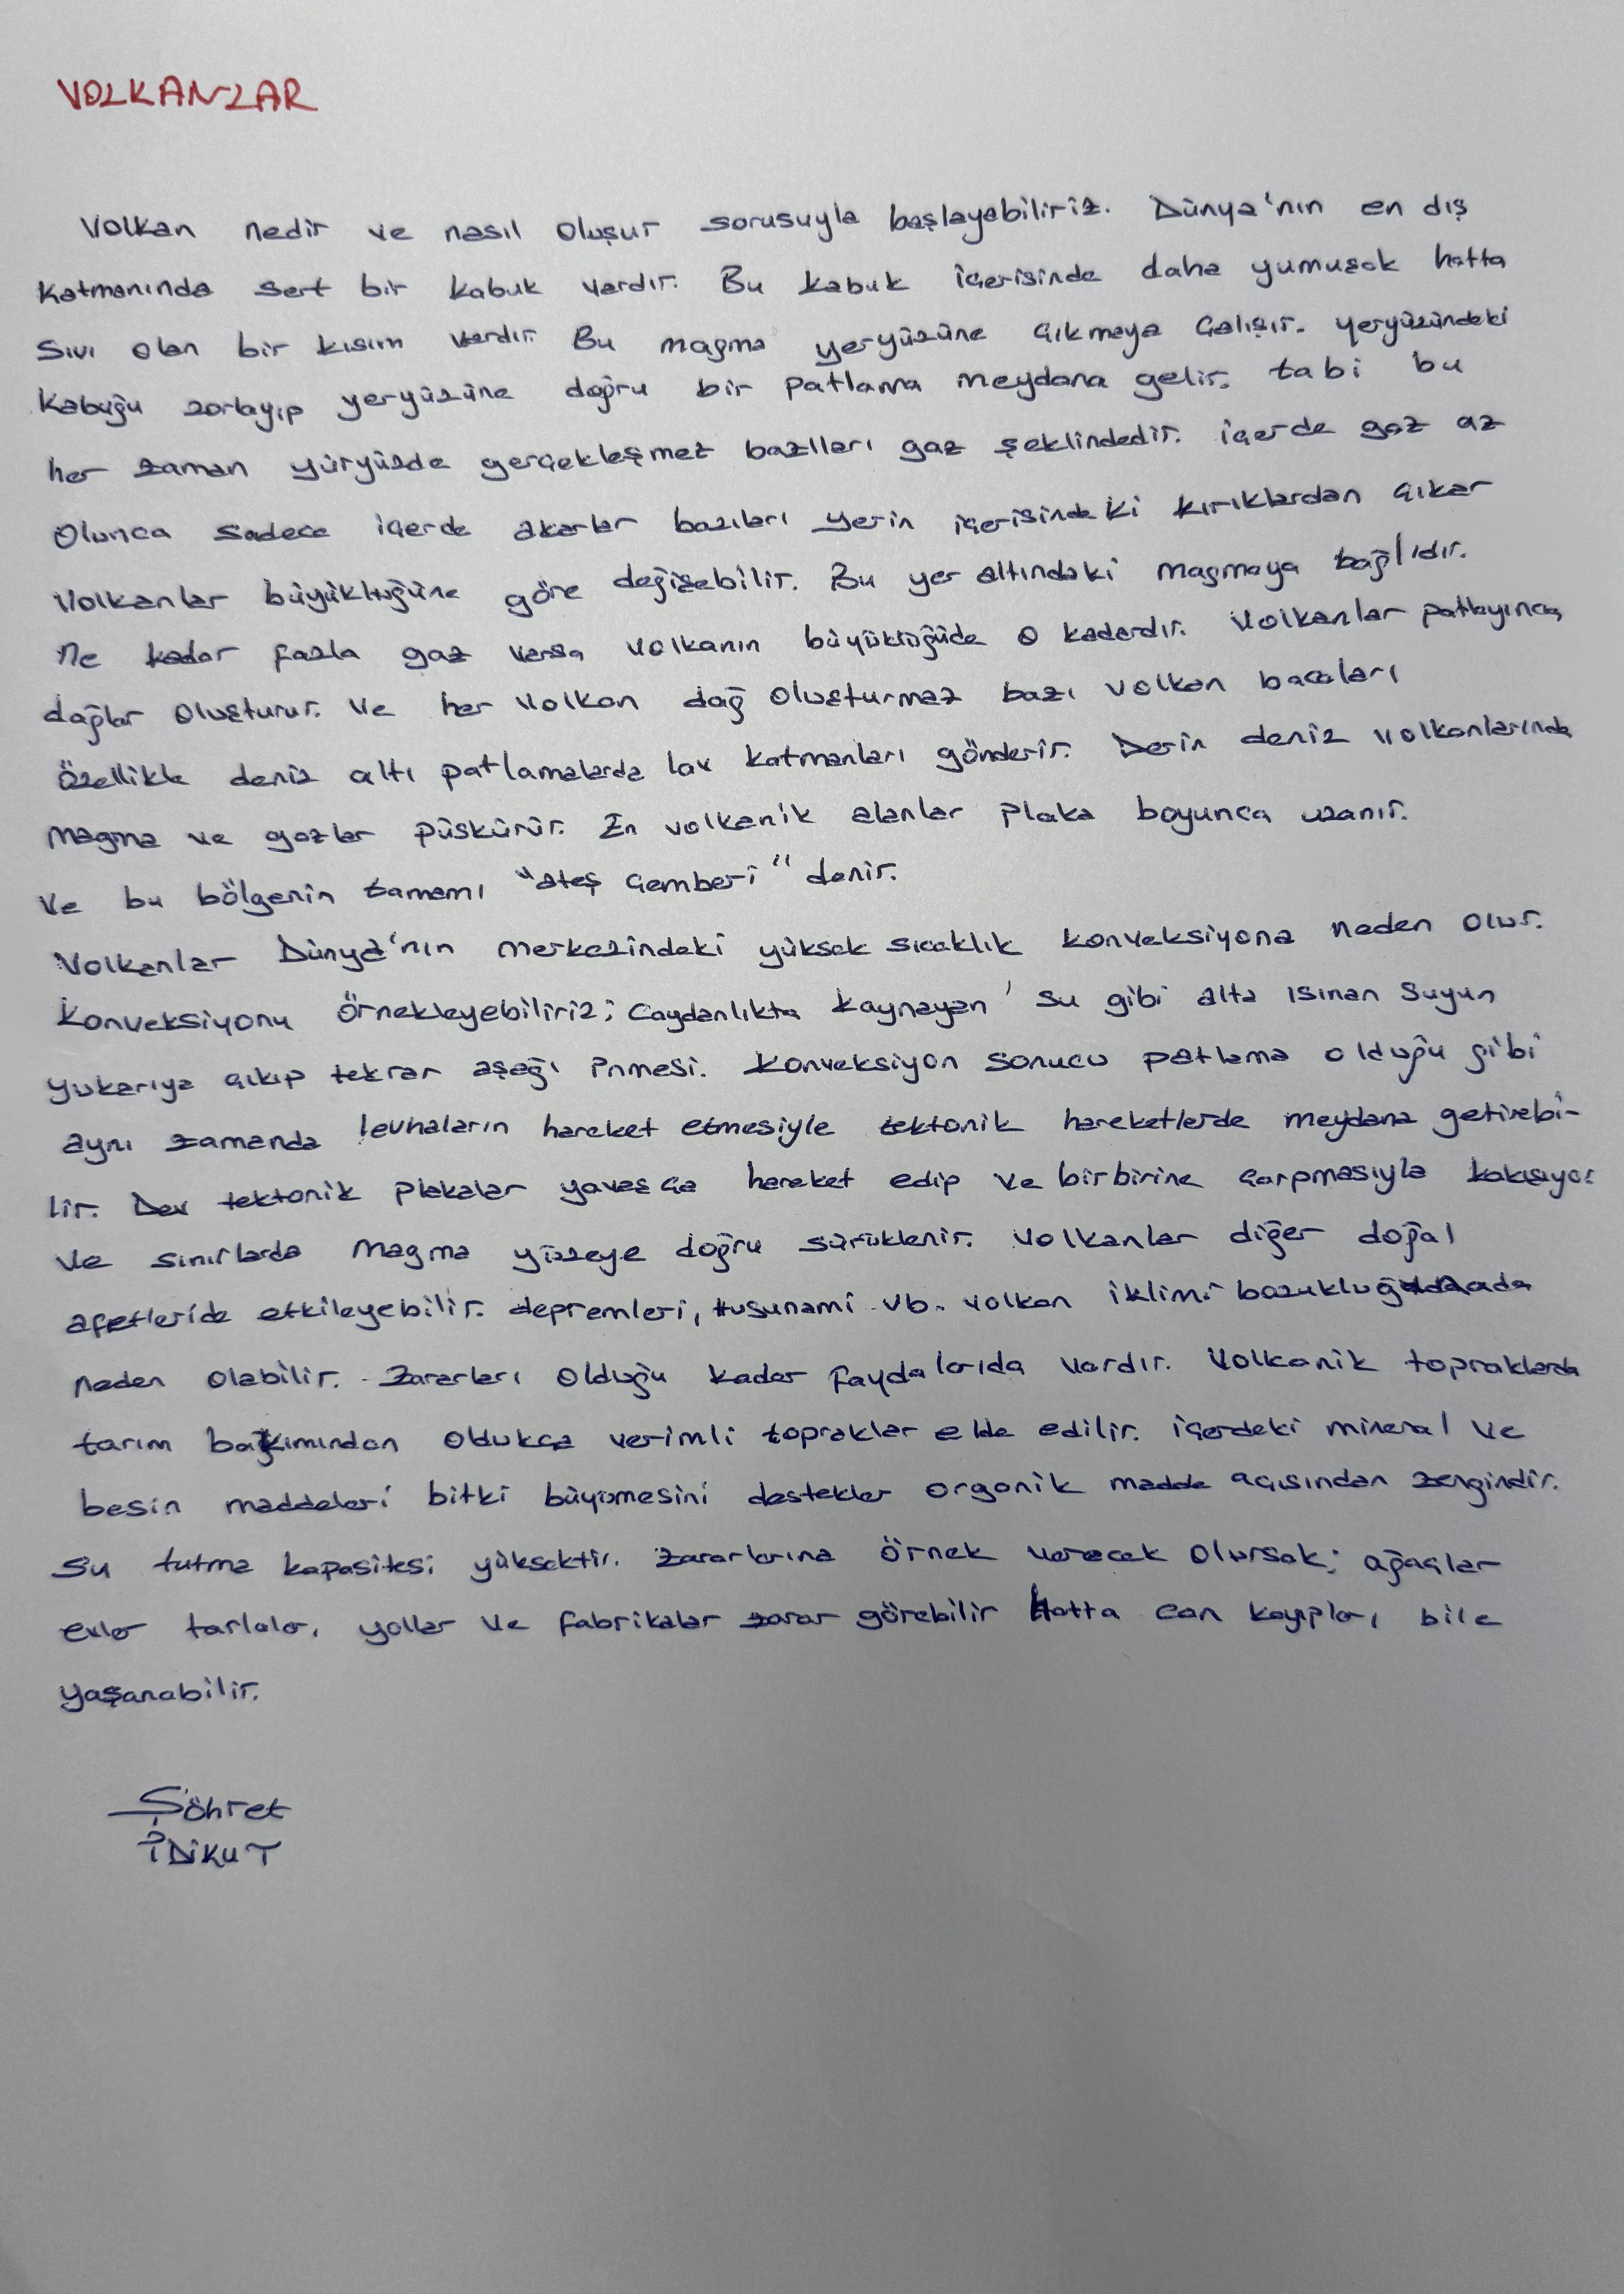 VOLKANLAR
Volkan nedir ve nasıl oluşur sorusuyla başlayabiliriz. Dünya'nın en dış
katmanında sert bir kabuk vardır. Bu kabuk içerisinde daha yumuşak hatta
sıvı olan bir kısım vardır. Bu magma yeryüzüne çıkmaya çalışır. yeryüzündeki
kabuğu zorlayıp yeryüzüne doğru bir patlama meydana gelir. tabi bu
her zaman yüryüzde gerçekleşmez bazılları gaz şeklindedir. içerde gaz az
olunca sadece içerde akarlar bazıları yerin içerisindeki kırıklardan çıkar
Volkanlar büyüklüğüne göre değişebilir. Bu yer altındaki magmaya bağlıdır.
Ne kadar fazla gaz varsa volkanın büyüklüğüde o kadardır. Volkanlar patlayınca
dağlar oluşturur. Ve her volkan dağ oluşturmaz bazı volkan bacaları
özellikle deniz altı patlamalarda lav katmanları gönderir. Derin deniz volkanlarında
magma ve gazlar püskürür. En volkanik alanlar plaka boyunca uzanır.
Ve bu bölgenin tamamı "ateş çemberi" denir.
Volkanlar Dünya'nın merkezindeki yüksek sıcaklık konveksiyona neden olur.
Konveksiyonu örnekleyebiliriz; Çaydanlıkta kaynayan su gibi alta ısınan suyun
yukarıya çıkıp tekrar aşağı inmesi. Konveksiyon sonucu patlama olduğu gibi
aynı zamanda levhaların hareket etmesiyle tektonik hareketlerde meydana getirebi-
lir. Dev tektonik plakalar yavaşça hareket edip ve birbirine çarpmasıyla kakışıyor
ve sınırlarda magma yüzeye doğru sürüklenir. Volkanlar diğer doğal
afetleride etkileyebilir. depremleri, tusunami vb. volkan iklimi bozukluğada
neden olabilir. Zararları olduğu kadar faydalarıda vardır. Volkanik topraklarda
tarım bakımından oldukça verimli topraklar elde edilir. içerdeki mineral ve
besin maddeleri bitki büyümesini destekler organik madde açısından zengindir.
Su tutma kapasitesi yüksektir. Zararlarına örnek verecek olursak; ağaçlar
evler tarlalar, yollar ve fabrikalar zarar görebilir Hatta can kayıpları bile
yaşanabilir.
Şöhret
İDİKUT